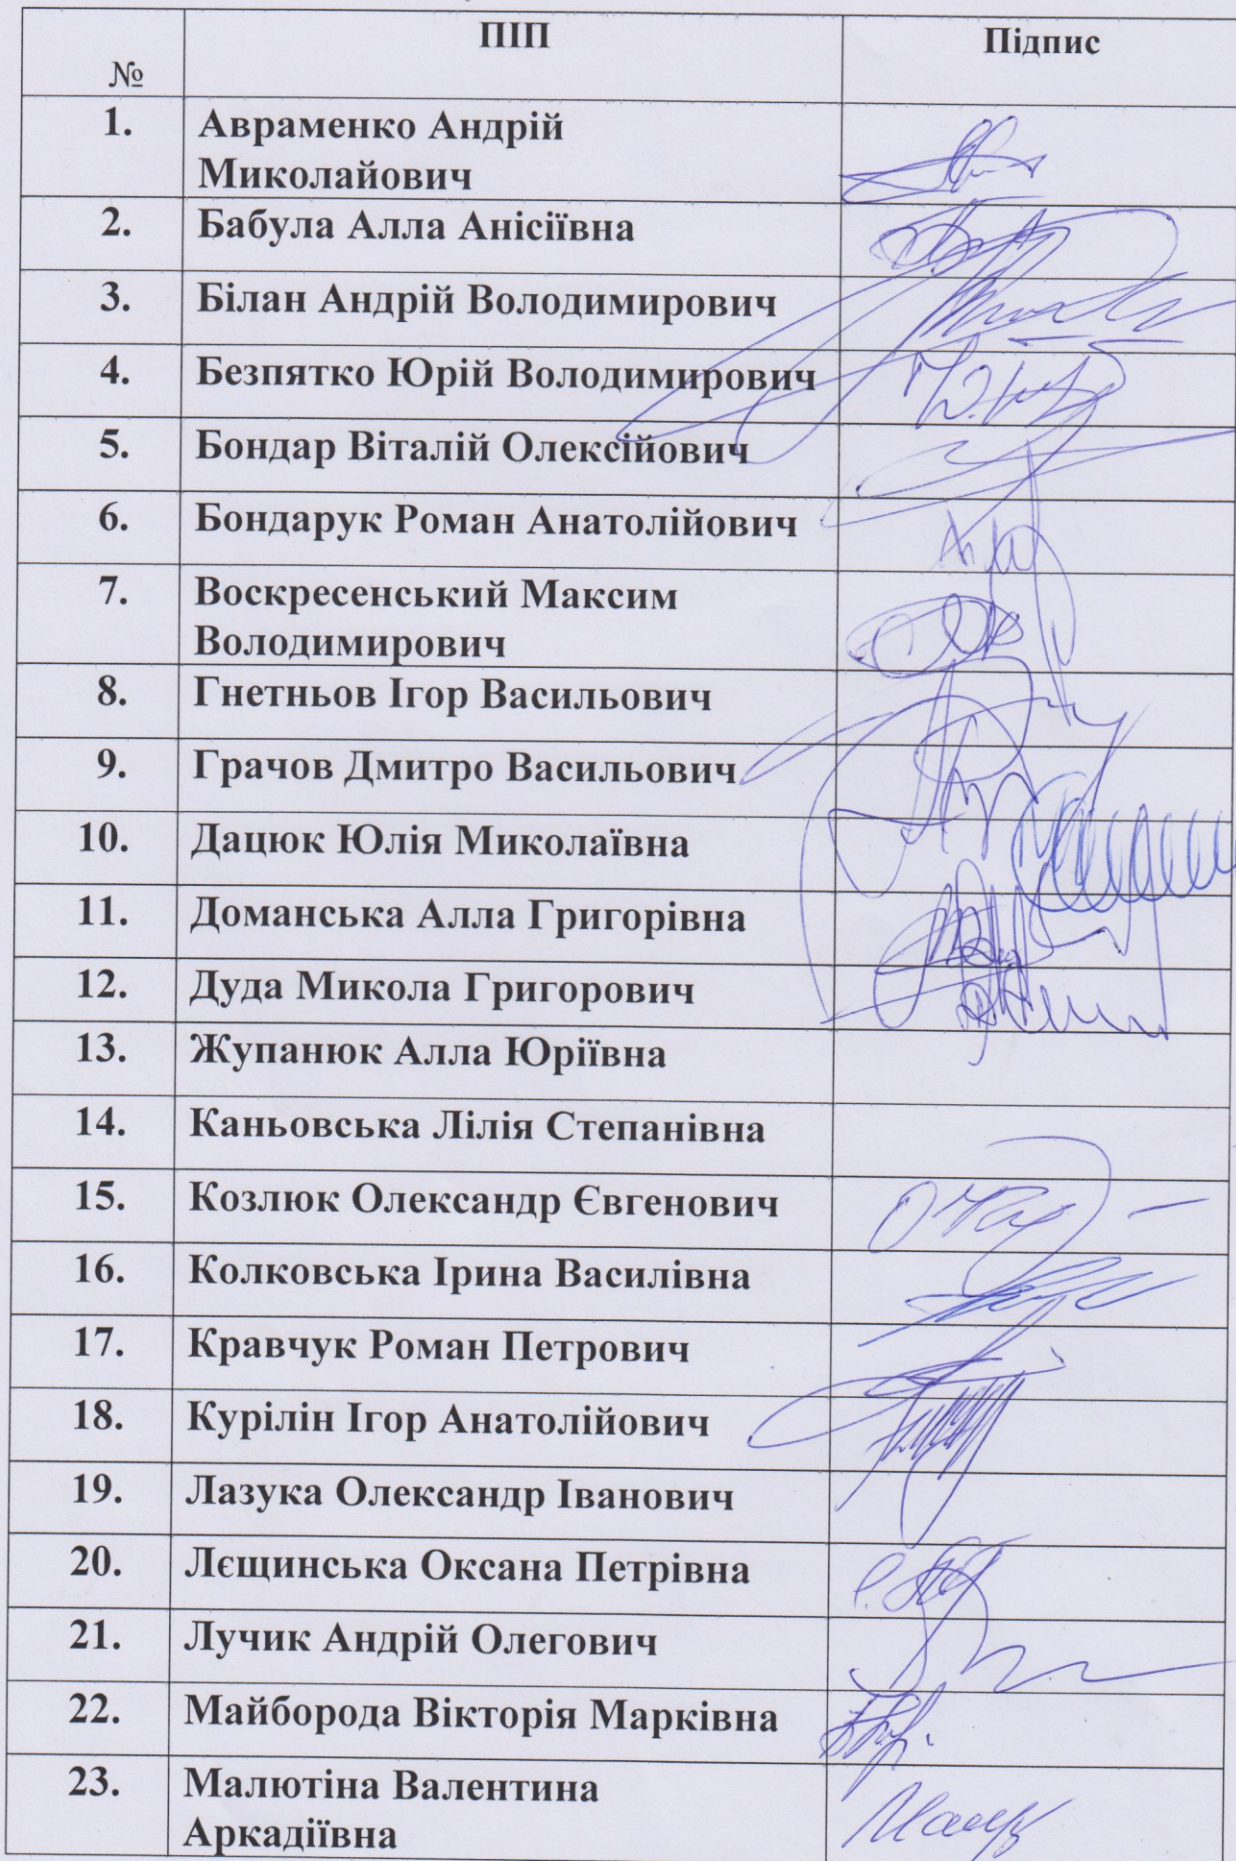 № ПІП Підпис
1. Авраменко Андрій
Миколайович
2. Бабула Алла Анісіївна
3. Білан Андрій Володимирович
4. Безпятко Юрій Володимирович
5. Бондар Віталій Олексійович
6. Бондарук Роман Анатолійович
7. Воскресенський Максим
Володимирович
8. Гнетньов Ігор Васильович
9. Грачов Дмитро Васильович
10. Дацюк Юлія Миколаївна
11. Доманська Алла Григорівна
12. Дуда Микола Григорович
13. Жупанюк Алла Юріївна
14. Каньовська Лілія Степанівна
15. Козлюк Олександр Євгенович
16. Колковська Ірина Василівна
17. Кравчук Роман Петрович
18. Курілін Ігор Анатолійович
19. Лазука Олександр Іванович
20. Лєщинська Оксана Петрівна
21. Лучик Андрій Олегович
22. Майборода Вікторія Марківна
23. Малютіна Валентина
Аркадіївна